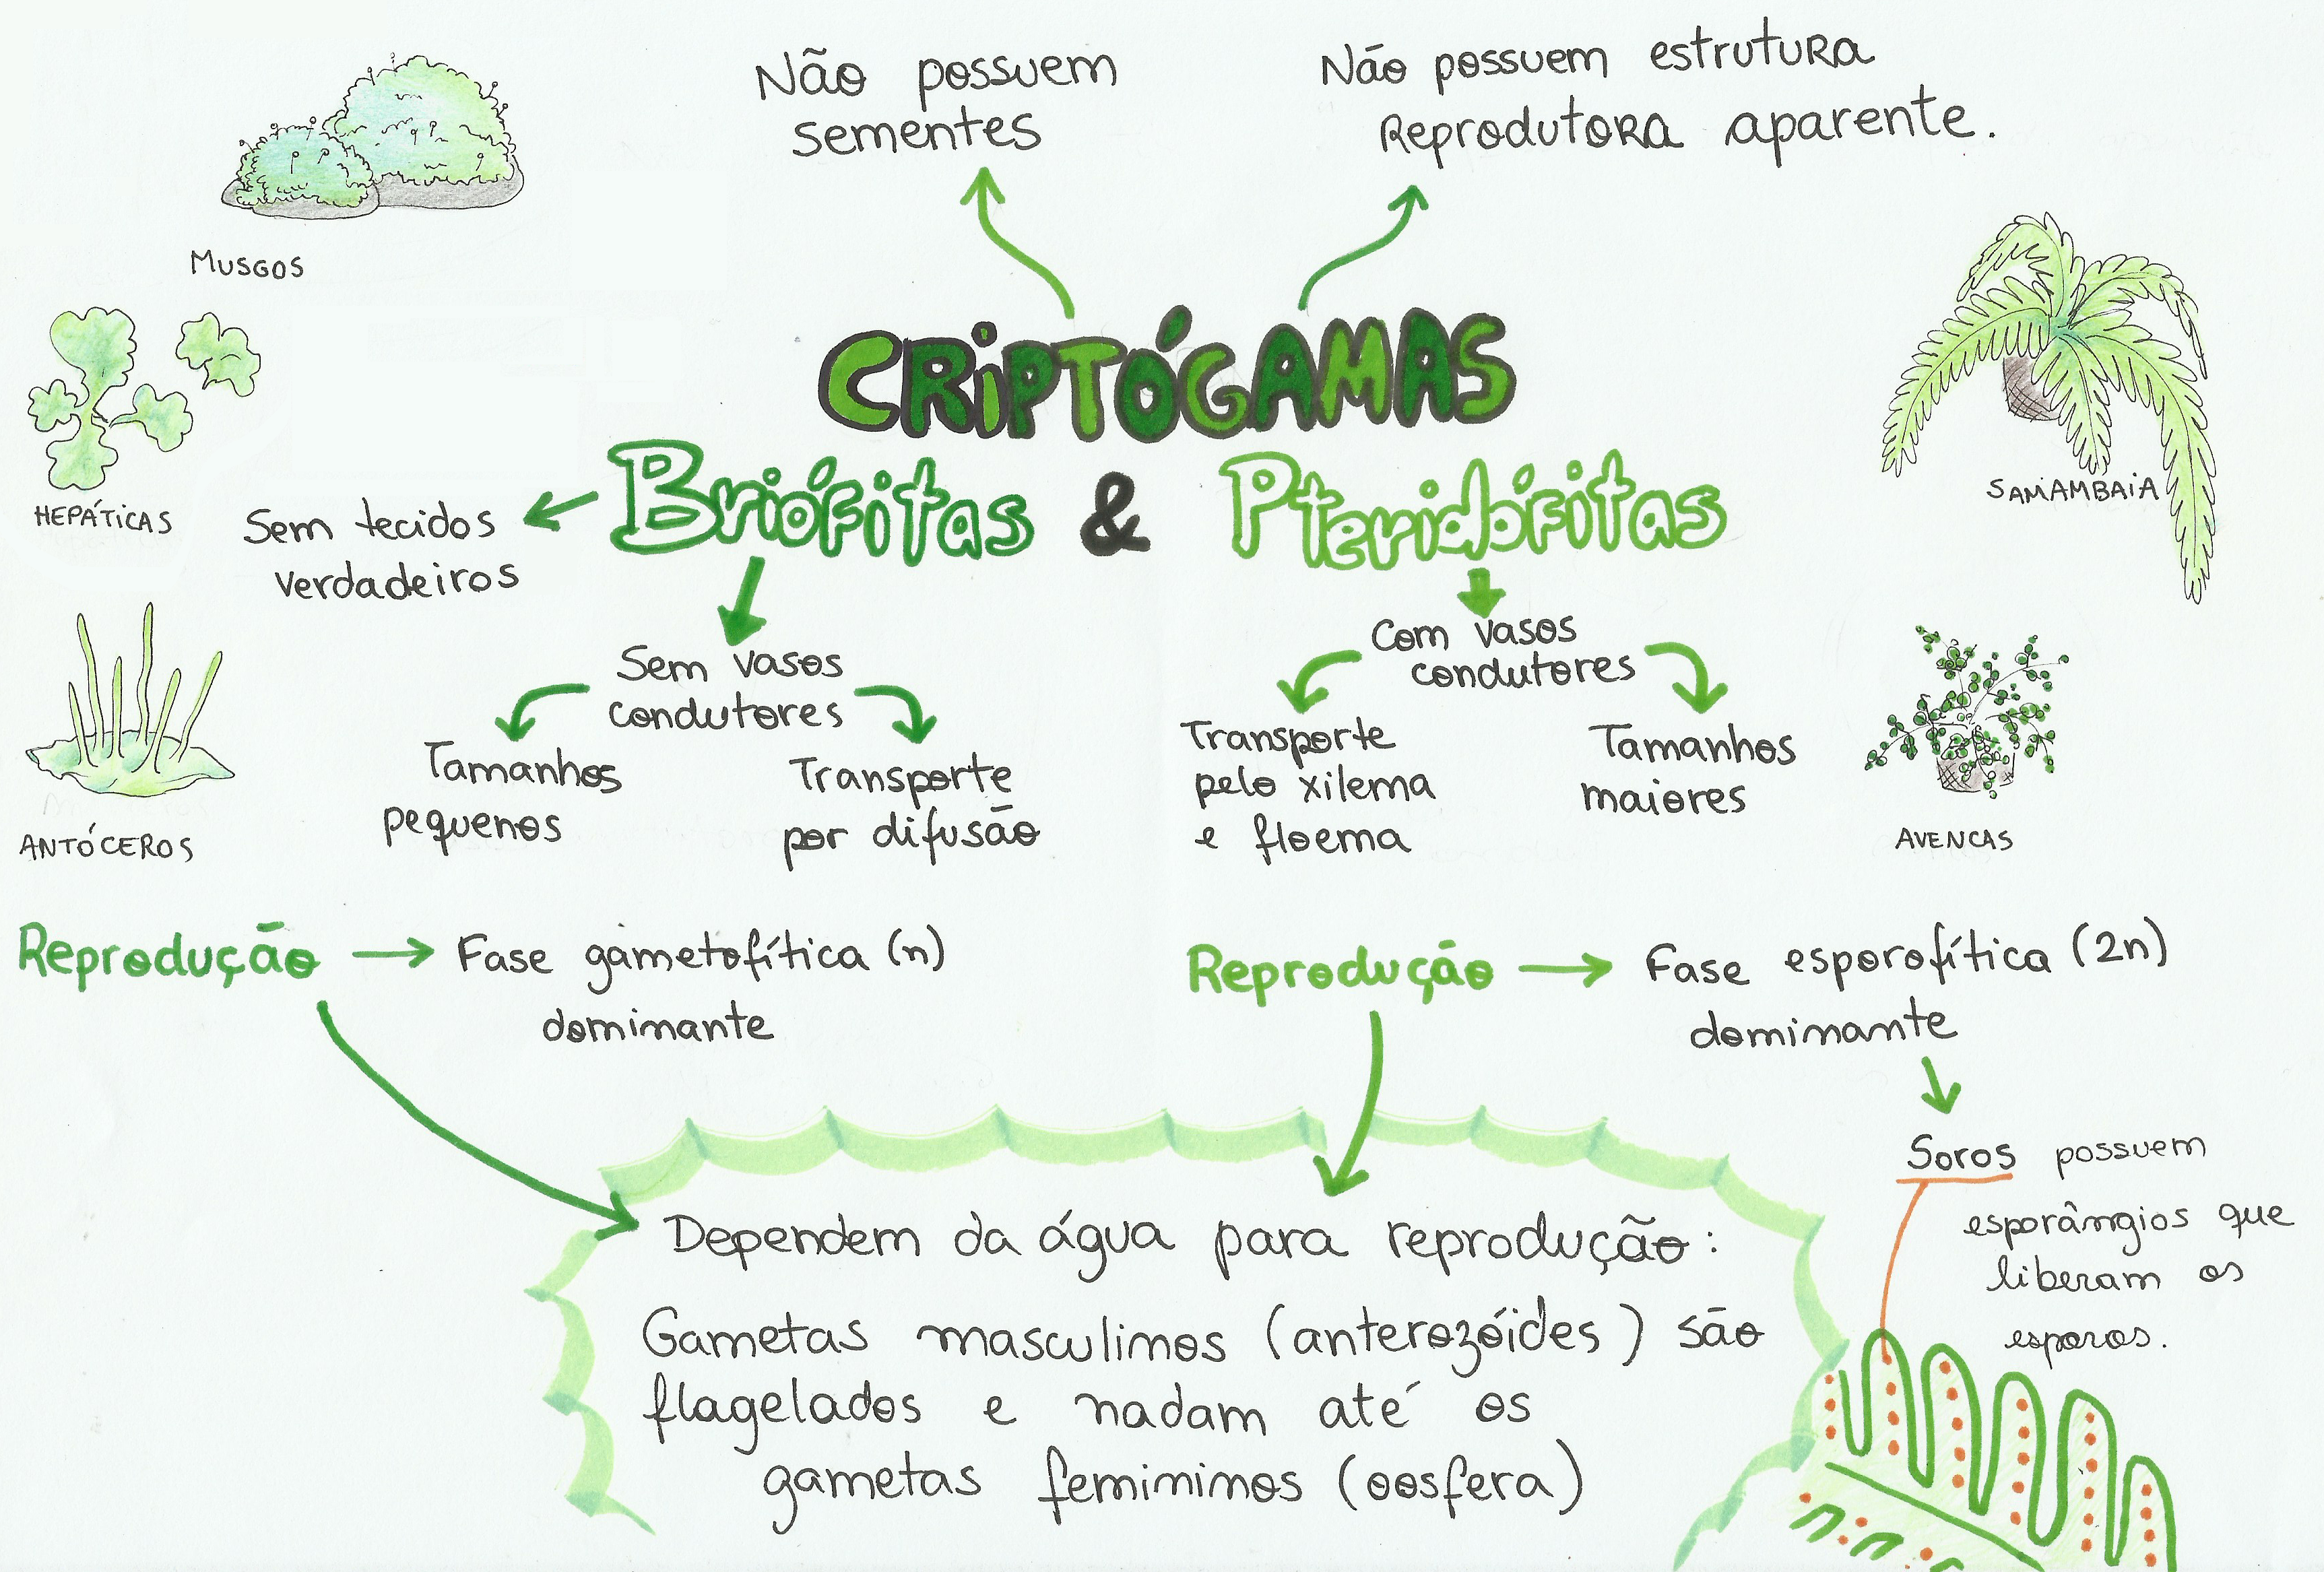 Não possuem
sementes
Não possuem estrutura
Reprodutora aparente.
MUSGOS
CRIPTÓGAMAS
HEPÁTICAS
Sem tecidos
verdadeiros
Briófitas & Pteridófitas
SAMAMBAIA
Sem vasos
condutores
Tamanhos
pequenos
Transporte
por difusão
Com vasos
condutores
Transporte
pelo xilema
e floema
Tamanhos
maiores
ANTÓCEROS
AVENCAS
Reprodução
Fase gametofítica (n)
dominante
Reprodução
Fase esporofítica (2n)
dominante
Soros possuem
esporângios que
liberam os
esporos.
Dependem da água para reprodução:
Gametas masculinos (anterozóides) são
flagelados e nadam até os
gametas femininos (oosfera)